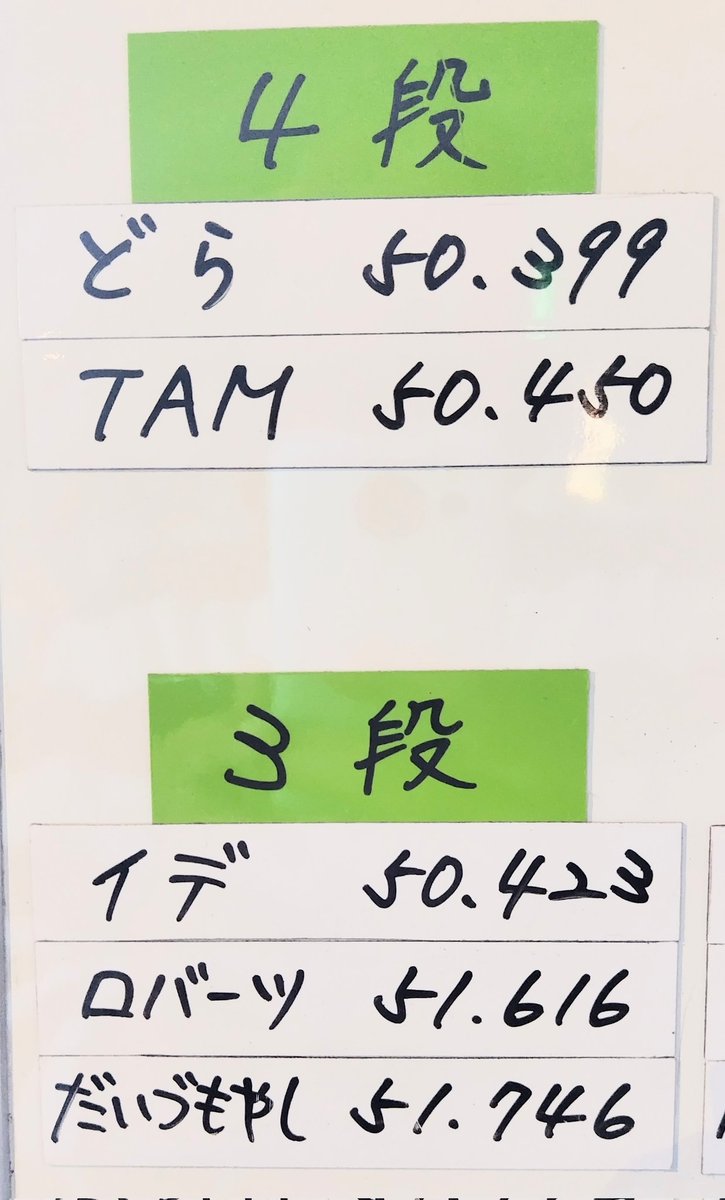 4段
どら 50.399
TAM 50.450
3段
イデ 50.423
ロバーツ 51.616
だいづもやし 51.746